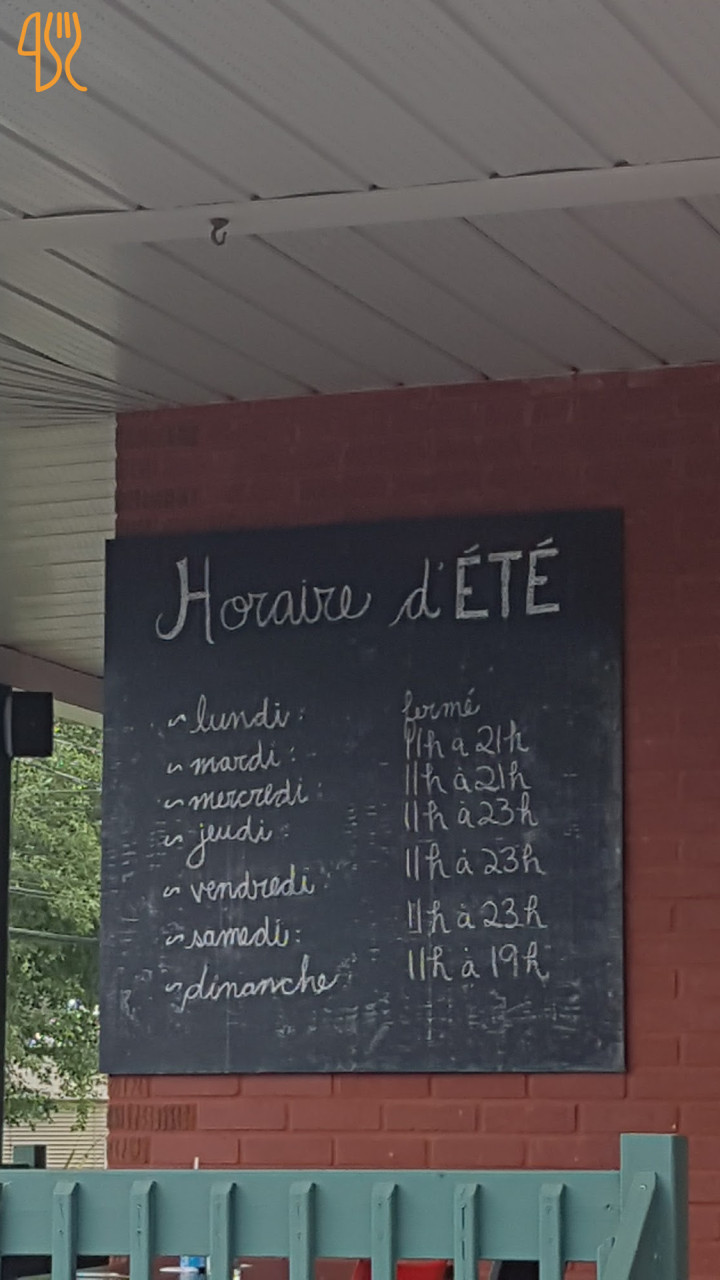 Horaire d'ÉTÉ
~ lundi : fermé
~ mardi : 11h à 21h
~ mercredi : 11h à 21h
~ jeudi : 11h à 23h
~ vendredi 11h à 23h
~ samedi : 11h à 23h
~ dimanche 11h à 19h